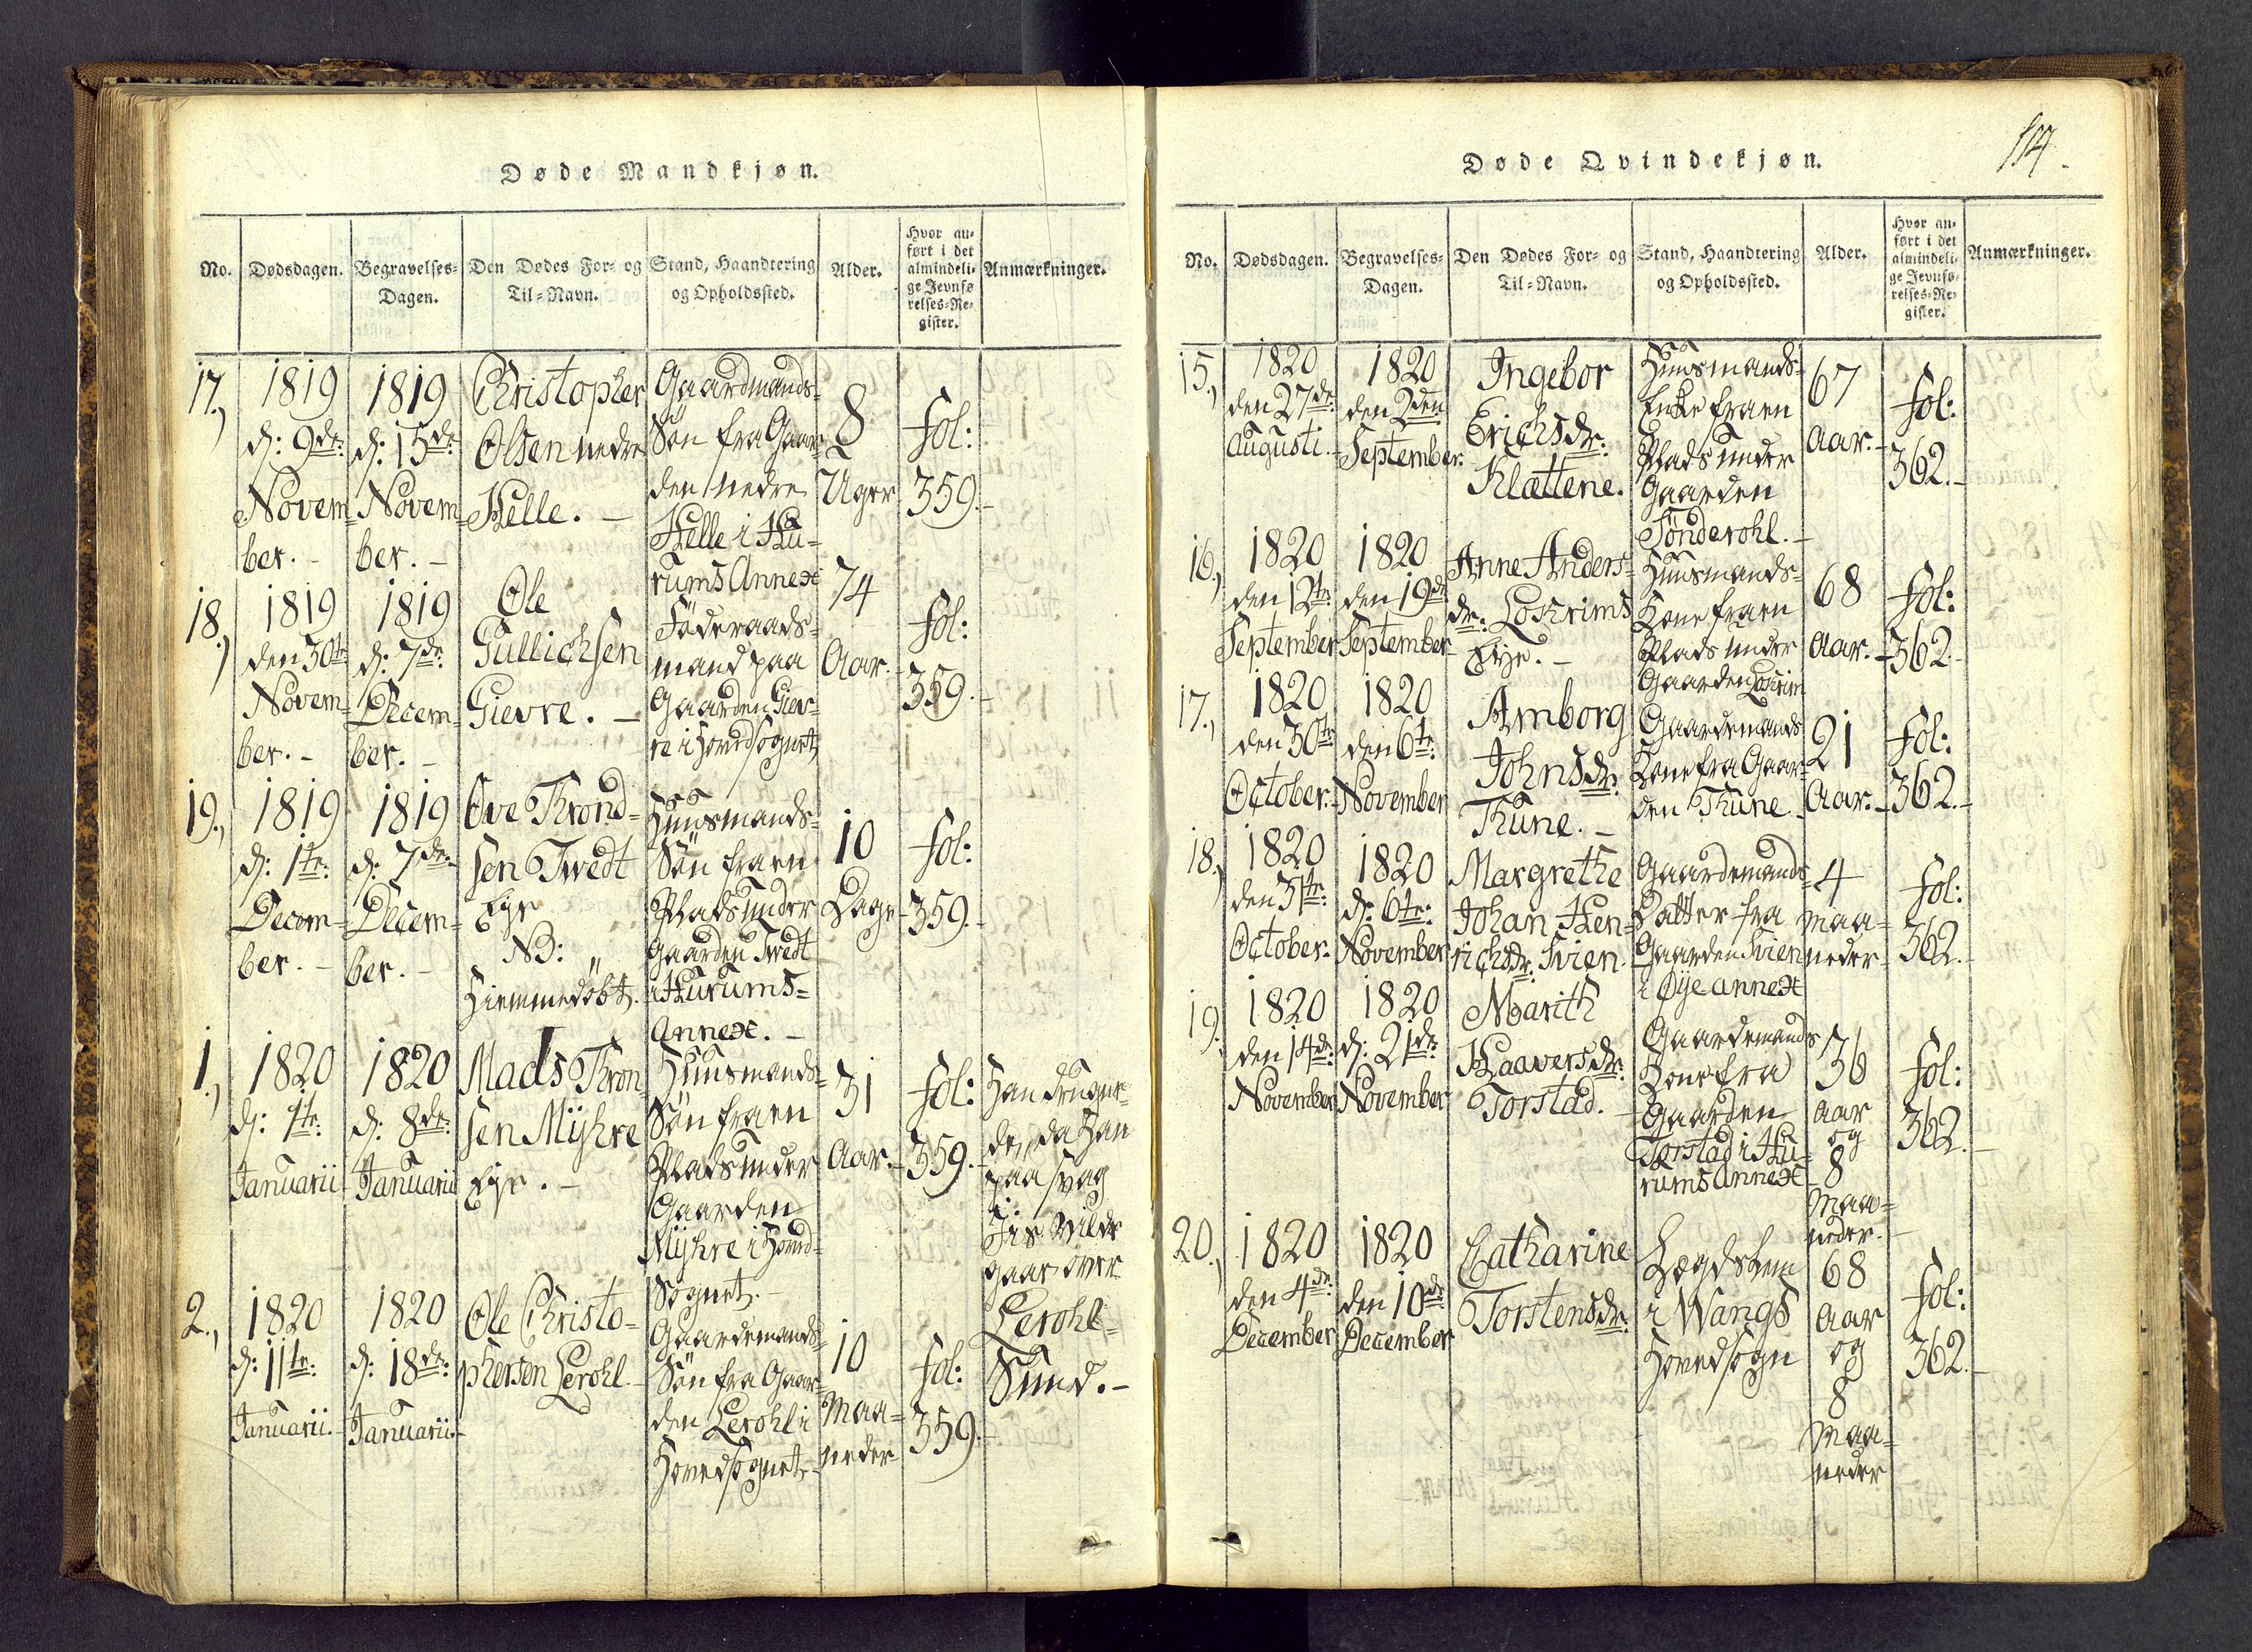 Døde Mandkjøn.
No.
Dødsdagen.
Begravelses-
Dagen.
Den Dødes For- og
Til-Navn.
Stand, Haandtering
og Opholdssted.
Alder.
Hvor an-
ført i det
almindeli-
ge Jevnfø-
relses-Re-
gister.
Anmærkninger.
17.,
1819
d: 9de:
Novem-
ber. -
1819
d: 15de
Novem-
ber. -
Christopher
Olsen nedre
Helle. -
Gaardmands-
Søn fra Gaar-
den nedre
Helle i Hu-
rums Annex
8
Uger
fol:
359. -
18.,
1819
den 30te
Novem-
ber. -
1819
d: 7de
Decem-
ber. -
Ole
Gullichsen
Gievre. -
Föderaads-
mand paa
Gaarden Giev-
re i Hovedsognet
74
Aar. -
fol:
359. -
19.,
1819
d: 1te:
Decem-
ber. -
1819
d: 7de:
Decem-
ber. -
Ove Thrond-
sen Twedt
Eye
NB:
Hiemmedöbt.
Huusmands-
Søn fra en
Plads under
Gaarden Twedt
i Hurums-
Annex. -
10
Dage
fol:
359. -
1.,
1820
d: 1te:
Januarii
1820
d: 8de:
Januarii
Mads Thron-
sen Mÿhre
Eye. -
Huusmands-
Søn fra en
Plads under
Gaarden
Mÿhre i Hoved-
Sognet. -
31
Aar. -
fol:
359. -
Han drugne-
de, da Han
paa svag
Iis vilde
gaae over
Lerohl-
Sund. -
2.,
1820
d: 11te:
Januarii. -
1820
d: 18de:
Januarii. -
Ole Christo-
phersen Lerohl. -
Gaardemands-
Søn fra Gaar-
den Lerohl i
Hovedsognet. -
10
Maa-
neder
fol:
359. -
Døde Qvindekjøn.
114.
No.
Dødsdagen.
Begravelses-
Dagen.
Den Dødes For- og
Til-Navn.
Stand, Haandtering
og Opholdssted.
Alder.
Hvor an-
ført i det
almindeli-
ge Jevnfø-
relses-Re-
gister.
Anmærkninger.
15.,
1820
den 27de:
Augusti. -
1820
den 2den
September.
Ingebor
Erichsdr:
Klættene.
Huusmands-
Enke fra en
Plads under
Gaarden
Sönderohl. -
67
Aar. -
fol:
362. -
16.,
1820
den 12te:
September
1820
den 19de
September
Anne Anders-
dr: Loskrims
Eye. -
Huusmands-
Kone fra en
Plads under
Gaarden Loskrim
68
Aar. -
fol:
362. -
17.,
1820
den 30te
October. -
1820
den 6te:
November
Amborg
Johnsdr:
Thune. -
Gaardemands
Kone fra Gaar-
den Thune
21
Aar. -
fol:
362. -
18.,
1820
den 31te:
October.
1820
d: 6te:
November
Margrethe
Johan Hen-
richsdr. Svien.
Gaardemands-
Datter fra
Gaarden Svien
i Øye Annex
4
Maa-
neder
fol:
362. -
19.
1820
den 14de:
November
1820
d: 21de
November
Marith
Haaversdr:
Torstad. -
Gaardemands
Kone fra
Gaarden
Torstad i Hu-
rums Annex
36
Aar
og
8
Maa-
neder. -
fol:
362. -
20.,
1820
den 4de:
December
1820
den 10de
December
Catharine
Torstensdr:
Lægdslem
i Wangs
Hovedsogn
68
Aar
og
8
Maa-
neder
fol:
362. -